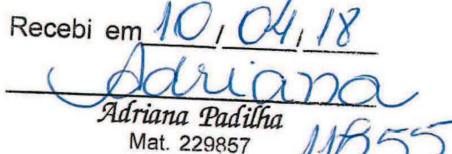 Recebi em 10/04/18
Adriana
Adriana Padilha
Mat. 229857